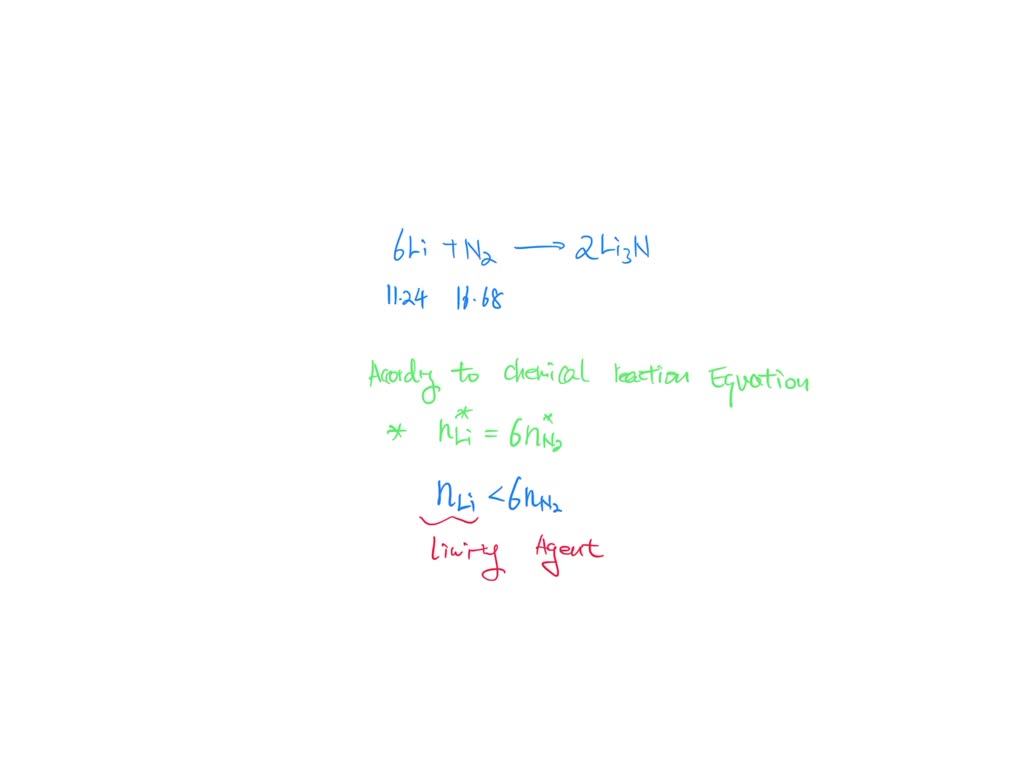 6Li + N₂ ⟶ 2Li₃N
11.24 18.68
Accordng to chemical reaction Equation
* n*Li = 6n*N₂
nLi < 6nN₂
Limitg Agent